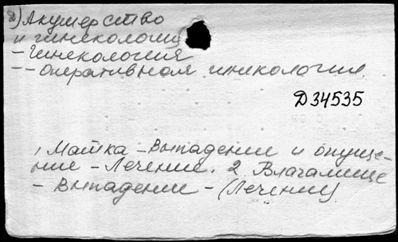 2) Акушерство
и гинекология
- Гинекология
-- Оперативная гинекология.
Д34535
1 Матка - Выпадение и опуще-
ние - Лечение. 2. Влагалище
- Выпадение - (Лечение)